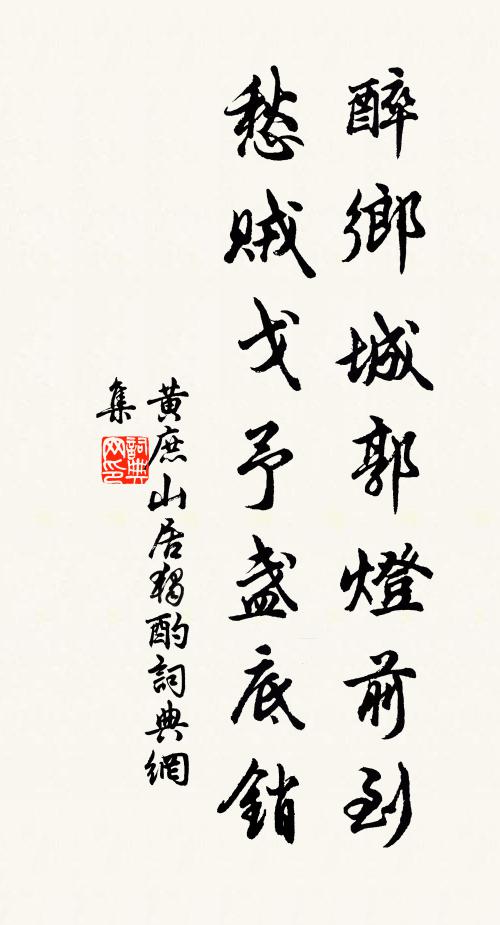 醉鄉城郭燈前到
愁賊戈予盞底銷
黃庶山居獨酌詞典網
集
詞典網印